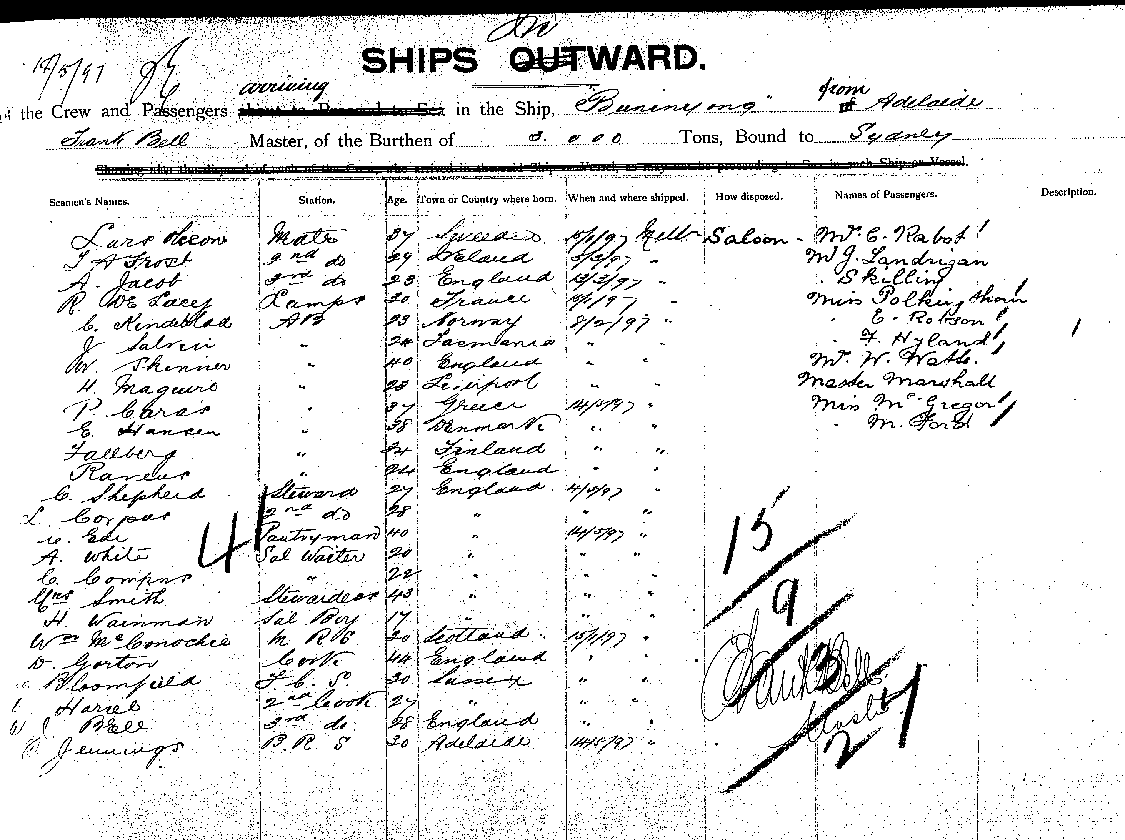 In
SHIPS OUTWARD.
the Crew and Passengers arriving about to Proceed to Sea in the Ship, "Buninyong" from Adelaide
Frank Bell Master, of the Burthen of 3.000 Tons, Bound to Sydney
Seamen's Names. Station. Age. Town or Country where born. When and where shipped. How disposed. Names of Passengers. Description.
Mate 37 Sweden 15/1/97 Melb Saloon - Mr. C. Rabot
T A Frost 2nd do 29 Ireland " Mr J. Landrigan
A. Jacob 3rd do 23 England " Skilling
R. De Lacey Lamps 30 France " Miss Polkinghorn
C. AB 23 Norway 8/2/97 " " E. Robson
J Salvin " 24 Tasmania " " " F. Hyland
W. Skinner " 40 England " " Mr. W. Watts.
H. Maguire " 28 Liverpool " " Master Marshall
P. Caras " 37 Greece " Miss McGregor
E. Hansen " 38 Denmark " " " M. Ford
Fallberg " 24 Finland " "
" 24 England " "
C. Shepherd Steward 27 England "
L. Corpus 2nd do 28 " " "
Ede Pantryman 40 " "
A. White Sal Waiter 20 " " "
C. " 22 " " "
Mrs Smith Stewardess 43 " " "
H. Wainman Sal Boy 17 " " "
Wm McConochie M R S 30 Scotland 15/1/97 "
D. Gorton Cook 44 England " "
Bloomfield 30 Sussex " "
2nd Cook 27 " " "
J Bell 3rd do 28 England " "
Jennings B. R. S 30 Adelaide "
41
15
9
3
27
Frank Bell
Master